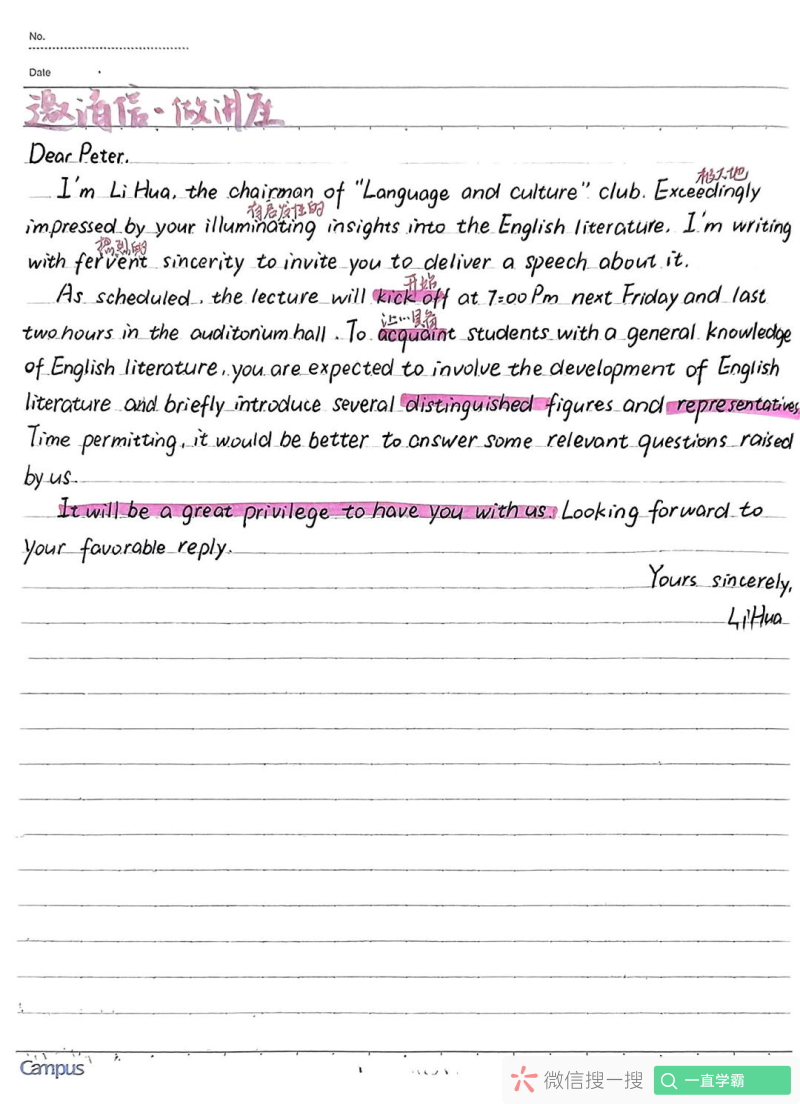 No.
Date
邀请信·做讲座
Dear Peter,
极大地
I'm Li Hua, the chairman of "Language and culture" club. Exceedingly
有启发性的
impressed by your illuminating insights into the English literature, I'm writing
热烈的
with fervent sincerity to invite you to deliver a speech about it.
开始
As scheduled, the lecture will kick off at 7:00 Pm next Friday and last
让…具备
two hours in the auditorium hall. To acquaint students with a general knowledge
of English literature, you are expected to involve the development of English
literature and briefly introduce several distinguished figures and representatives.
Time permitting, it would be better to answer some relevant questions raised
by us.
It will be a great privilege to have you with us. Looking forward to
your favorable reply.
Yours sincerely,
Li Hua
Campus
微信搜一搜
一直学霸